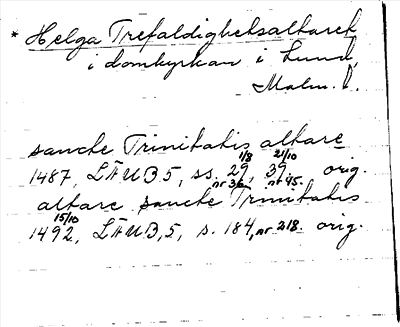 * Helga Trefaldighetsaltaret
i domkyrkan i Lund,
Malm. l.
sancte Trinitatis altare
1/8 21/10
1487, LÄUB 5, ss. 29, 39. orig.
nr 36 nr 45.
altare sancte Trinitatis
15/10
1492, LÄUB, 5, s. 184, nr 218. orig.